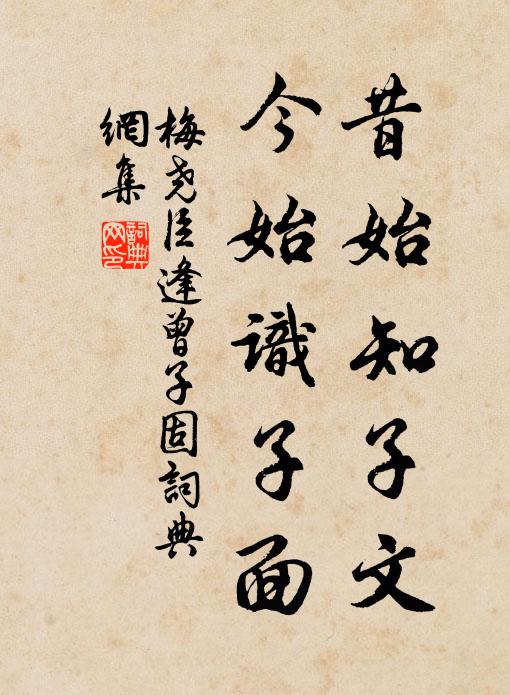 昔始知子文
今始識子面
梅堯臣逢曾子固詞典
網集
詞典
网印